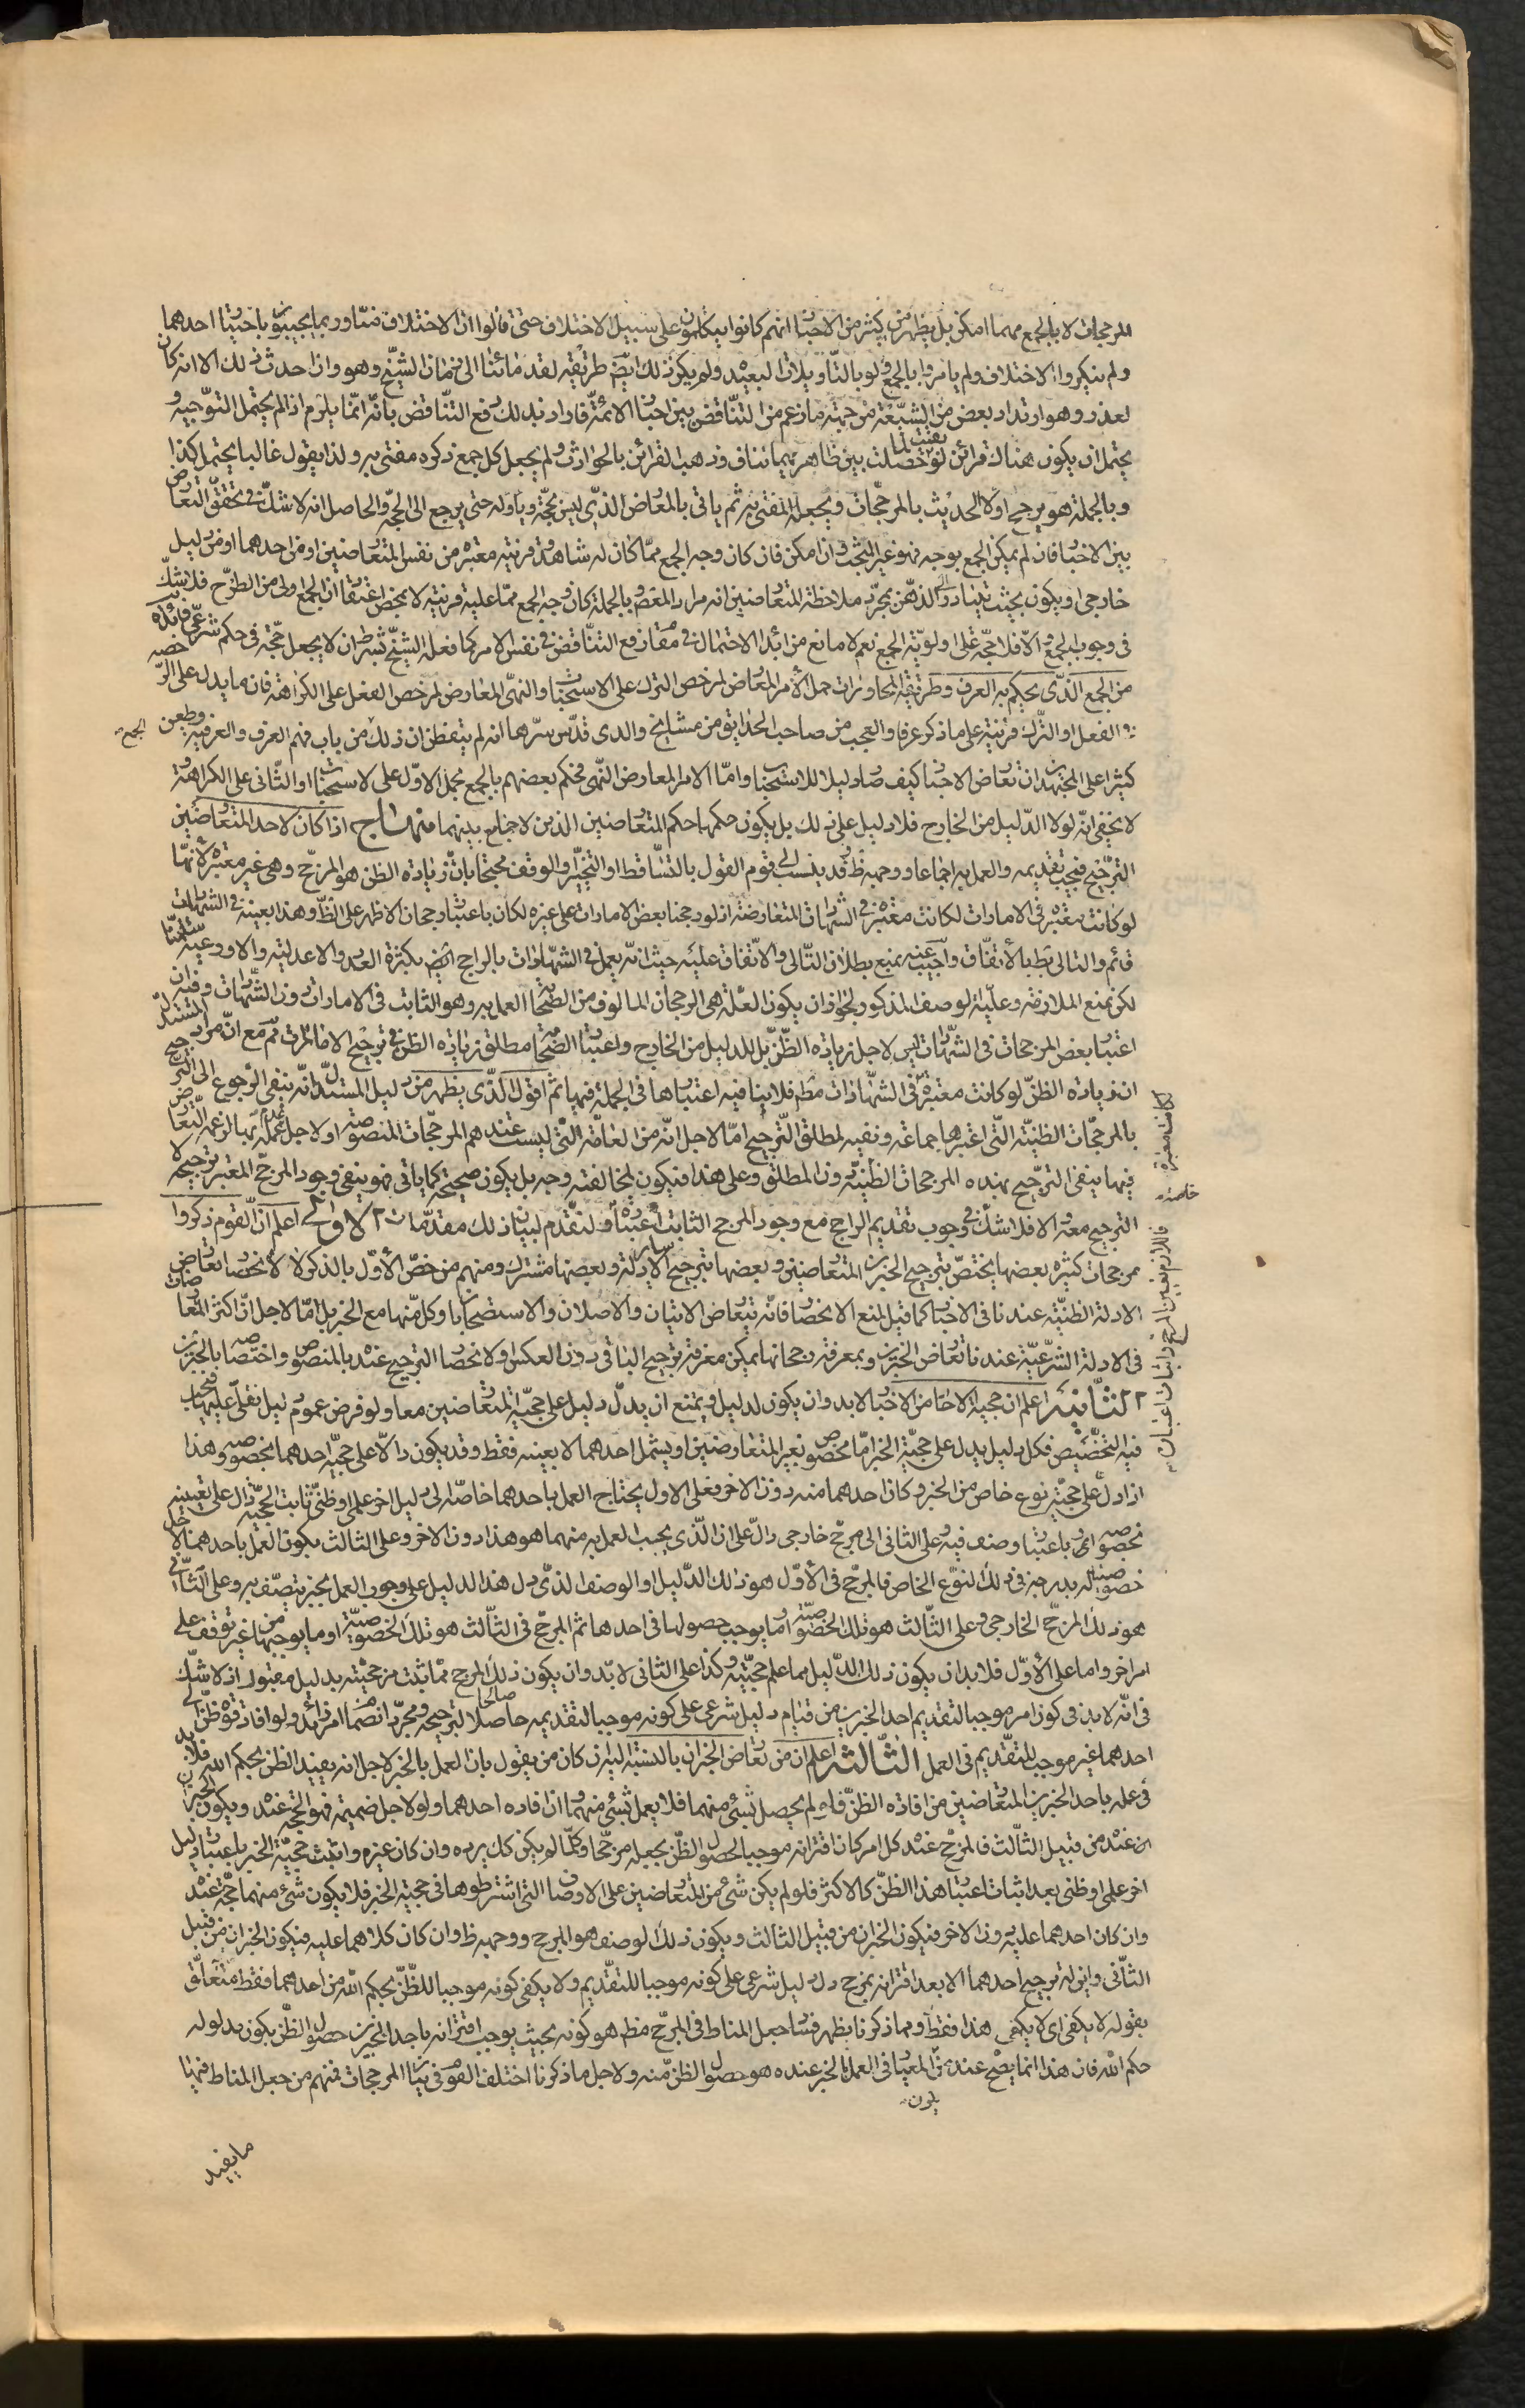 المرجحات لا بالجمع مهما امكن بل يظهر من كثير من الاخبار انهم كانوا يتكلمون على سبيل الاختلاف حتى قالوا ان الاختلاف منا وربما يجيبون باختيار احدهما
ولم ينكروا الاختلاف ولم يامروا بالجمع ولو بالتأويلات البعيد ولم يكن ذلك ايضا طريقة لقدمائنا الى زمان الشيخ وهو وان احدث ذلك الا انه كان
لعذر وهو ارتداد بعض من الشيعة من جهة ما زعم من التناقض بين اخبار الائمة فاراد بذلك رفع التناقض بانه انما يلزم اذا لم يحتمل التوجيه و
يحتمل ان يكون هناك قرائن لو حصلت بين ظاهر بهما تناف وذهب القرائن بالحوادث ولم يجعل كل جمع ذكره مفتى به ولذا يقول غالبا يحتمل كذا
وبالجملة هو يرجح اولا الحديث بالمرجحات ويجعله المفتى به ثم ياتى بالمعارض الذى ليس بحجة وياوله حتى يرجع الى الحجة والحاصل انه لا شك فى تحقق التعارض
بين الاخبار فان لم يمكن الجمع بوجه فهو غير البحث وان امكن فان كان وجه الجمع مما كان له شاهد وقرينة معتبرة من نفس المتعارضين او من احدهما او من دليل
خارجى او يكون بحيث يتبادر الى الذهن بمجرد ملاحظة المتعارضين انه مراد المعصوم وبالجملة كان وجه الجمع مما عليه قرينة لا بمحض اعتقاد ان الجمع اولى من الطرح فلا شك
فى وجوب الجمع والا فلا حجة على اولوية الجمع نعم لا مانع من ابداء الاحتمال فى مقام رفع التناقض فى نفس الامر كما فعله الشيخ بشرط ان لا يجعل حجة فى حكم شرعى فائدة
من الجمع الذى يحكم به العرف وطريقة المحاورات حمل الامر المعارض لمرخص الترك على الاستحباب والنهى المعارض لمرخص الفعل على الكراهة فان ما يدل على الرخصة
فى الفعل او الترك قرينة على ما ذكر عرفا والعجب من صاحب الحدايق من مشايخ والدى قدس سرهما انه لم يتفطن ان ذلك من باب فهم العرف والعرفية وطعن
كثيرا على المجتهدين ان تعارض الاخبار كيف صار دليلا للاستحباب واما الامر المعارض النهى فحكم بعضهم بالجمع بحمل الاول على الاستحباب او الثانى على الكراهة و
لا يخفى انه لولا الدليل من الخارج فلا دليل على ذلك بل يكون حكمها حكم المتعارضين الذين لا جامع بينهما منهاج اذا كان لاحد المتعارضين
الترجيح فيجب تقديمه والعمل به اجماعا ووجهه ظ وقد ينسب الى قوم القول بالتساقط او التخيير او الوقف محتجا بان زيادة الظن هو المرجح وهى غير معتبرة لانها
لو كانت معتبرة فى الامارات لكانت معتبرة فى الشهادات المتعارضة اذ لو رجحنا بعض الامارات على غيره لكان باعتبار رجحان الاظهر على الظ وهذا بعينه فى الشهادات
قائم والتالى بط بالاتفاق واجيب عنه بمنع بطلان التالى والاتفاق عليه حيث انه يعمل فى الشهادات بالراجح ايضا بكثرة العدد والاعدلية والاورعية سلمنا
لكن نمنع الملازمة وعلية الوصف المذكور لجواز ان يكون العلة هى الرجحان المالوف من الصحابة العمل به وهو الثابت فى الامارات دون الشهادات وفيه ان
اعتبار بعض المرجحات فى الشهادات ليس لاجل زيادة الظن بل للدليل من الخارج واعتبار الصحابة مطلق زيادة الظن فى ترجيح الامارات ثم مع ان مراد المستدل
ان زيادة الظن لو كانت معتبرة فى الشهادات مطم فلا ينافيه اعتبارها فى الجملة فيها ثم اقول الذى يظهر من دليل المستدل انه ينفى الرجوع الى الترجيح
بالمرجحات الظنية التى اعتبرها جماعة ونفيه لمطلق الترجيح اما لاجل انه من العامة التى ليست عندهم المرجحات المنصوصة او لاجل عدم عمله بها لزعمه التعارض
فيها ينفى الترجيح بهذه المرجحات الظنية دون المطلق وعلى هذا فيكون لمخالفته وجه بل يكون صحيحة كما ياتى فهو ينفى وجود المرجح المعتبر ترجيحه لا
الترجيح معه والا فلا شك فى وجوب تقديم الراجح مع وجود المرجح الثابت اعتباره ولنقدم لبيان ذلك مقدمات الاولى اعلم ان القوم ذكروا
مرجحات كثيرة بعضها يختص بترجيح الخبرين المتعارضين وبعضها بترجيح سائر الادلة وبعضها مشترك ومنهم من خص الاول بالذكر لا لانحصار تعارض
الادلة الظنية عندنا فى الاخبار كما قيل لمنع الانحصار فانه يتعارض الايتان والاصلان والاستصحابان وكل منها مع الخبر بل اما لاجل ان اكثر المتعارضات
فى الادلة الشرعية عندنا تعارض الخبرين وبمعرفة رجحانها يمكن معرفة ترجيح الباقى دون العكس او لانحصار الترجيح عنده بالمنصوص واختصاصه بالخبرين
الثانية اعلم ان حجية الاحاد من الاخبار لا بد وان يكون لدليل ويمتنع ان يدل دليل على حجية المتعارضين معا ولو فرض عموم دليل نقلى عليها فيجب
فيه التخصيص فكل دليل يدل على حجية الخبر اما مخصوص بغير المتعارضين او يشمل احدهما لا بعينه فقط وقد يكون دالا على حجية احدهما بخصوصه وهذا
اذا دل على حجية نوع خاص من الخبر وكان احدهما منه دون الاخر فعلى الاول يحتاج العمل باحدهما خاصة الى دليل اخر علمى او ظنى ثابت الحجية دال على تعيينه
بخصوصه او باعتبار وصف فيه وعلى الثانى الى مرجح خارجى دال على ان الذى يجب العمل به منهما هو هذا دون الاخر وعلى الثالث يكون العمل باحدهما لاجل
خصوصيته له يدرجه فى ذلك النوع الخاص فالمرجح فى الاول هو ذلك الدليل او الوصف الذى دل هذا الدليل على وجوب العمل بخبر يتصف به وعلى الثانى
هو ذلك المرجح الخارجى وعلى الثالث هو تلك الخصوصية او ما يوجب حصولها فى احدها ثم المرجح فى الثالث هو تلك الخصوصية او ما يوجبها من غير توقف على
امر اخر واما على الاول فلا بد ان يكون ذلك الدليل مما علم حجيته وكذا على الثانى لا بد وان يكون ذلك المرجح مما ثبت مرجحيته بدليل مقبول اذ لا شك
فى انه لا بد فى كون امر موجبا لتقديم احد الخبرين من قيام دليل شرعى على كونه موجبا لتقديمه صالحا لترجيحه ومجرد انضمام امر زائد ولو افاد قوة ظن فى
احدهما غير موجب للتقديم فى العمل الثالثة اعلم ان من تعارض الخبران بالنسبة اليه ان كان من يقول بان العمل بالخبر لاجل انه يفيد الظن بحكم الله فلا بد
فى عمله باحد الخبرين المتعارضين من افادة الظن فان لم يحصل شئ منهما فلا يعمل بشئ منهما وان افاده احدهما ولو لاجل ضميمة فهو الحجة عنده ويكون الخبران
عنده من قبيل الثالث فالمرجح عنده كل امر كان اقترانه موجبا لحصول الظن يجعله مرجحا وكلما لو يكن كك يرده وان كان غيره واثبت حجية الخبر باعتبار دليل
اخر علمى او ظنى بعد اثبات اعتبار هذا الظن كالاكثر فلو لم يكن شئ من المتعارضين على الاوصاف التى اشترطوها فى حجية الخبر فلا يكون شئ منهما حجة عنده
وان كان احدهما عليه دون الاخر فيكون الخبران من قبيل الثالث ويكون ذلك الوصف هو المرجح ووجهه ظ وان كان كلاهما عليه فيكون الخبران من قبيل
الثانى وليس له ترجيح احدهما الا بعد اقترانه بمرجح دل دليل شرعى على كونه موجبا للتقديم ولا يكفى كونه موجبا للظن بحكم الله من احدهما فقط متعلق
بقوله لا يكفى اى لا يكفى هذا فقط ومما ذكرنا يظهر فساد جعل المناط فى المرجح مطم هو كونه بحيث يوجب اقترانه باحد الخبرين حصول الظن بكون مدلوله
حكم الله فان هذا انما يصح عند من المعيار فى العمل بالخبر عنده هو حصول الظن منه ولاجل ما ذكرنا اختلف القوم فى بيان المرجحات فمنهم من جعل المناط فيها
ما يفيد